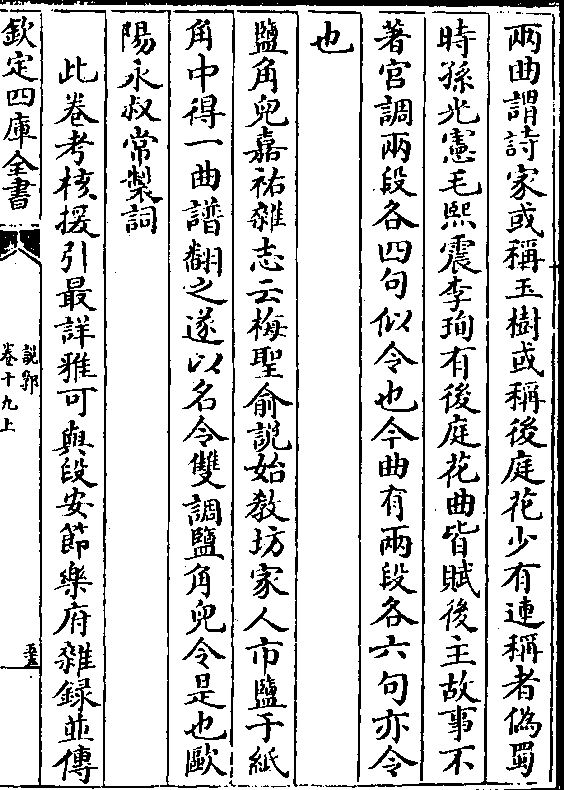 兩曲謂詩家或稱玉樹或稱後庭花少有連稱者偽蜀
時孫光憲毛熙震李珣有後庭花曲皆賦後主故事不
著宫調兩段各四句似令也今曲有兩段各六句亦令
也
鹽角兒嘉祐雜志云梅聖俞說始教坊家人市鹽于紙
角中得一曲譜翻之遂以名令雙調鹽角兒令是也歐
陽永叔常製詞
此卷考核援引最詳雅可與段安節樂府雜録並傳
欽定四庫全書
說郛
卷十九上